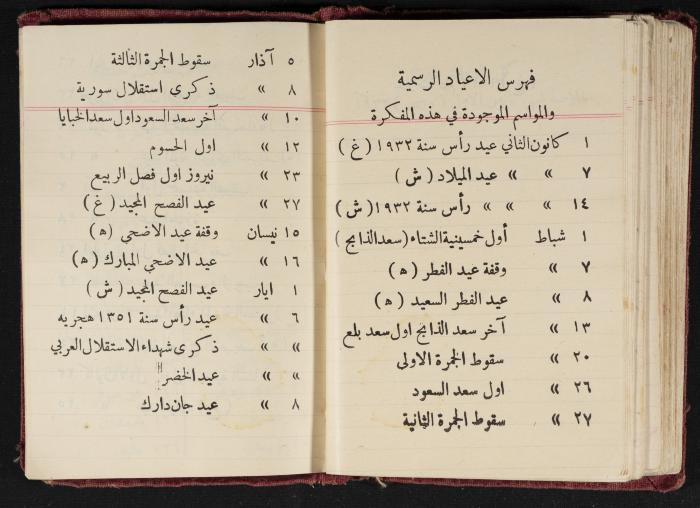 فهرس الاعياد الرسمية
والمواسم الموجودة في هذه المفكرة
١ كانون الثاني عيد رأس سنة ١٩٣٢ (غ)
٧ » » عيد الميلاد (ش)
١٤ » » رأس سنة ١٩٣٢ (ش)
١ شباط أول خمسينية الشتاء (سعد الذابح)
٧ » وقفة عيد الفطر (ﻫ)
٨ » عيد الفطر السعيد (ﻫ)
١٣ » آخر سعد الذابح اول سعد بلع
٢٠ » سقوط الجمرة الاولى
٢٦ » اول سعد السعود
٢٧ » سقوط الجمرة الثانية
٥ آذار سقوط الجمرة الثالثة
٨ » ذكرى استقلال سورية
١٠ » آخر سعد السعود اول سعد الخبايا
١٢ » اول الحسوم
٢٣ » نيروز اول فصل الربيع
٢٧ » عيد الفصح المجيد (غ)
١٥ نيسان وقفة عيد الاضحى (ﻫ)
١٦ » عيد الاضحى المبارك (ﻫ)
١ ايار عيد الفصح المجيد (ش)
٦ » عيد رأس سنة ١٣٥١ هجريه
» » ذكرى شهداء الاستقلال العربي
» » عيد الخضر
٨ » عيد جان دارك